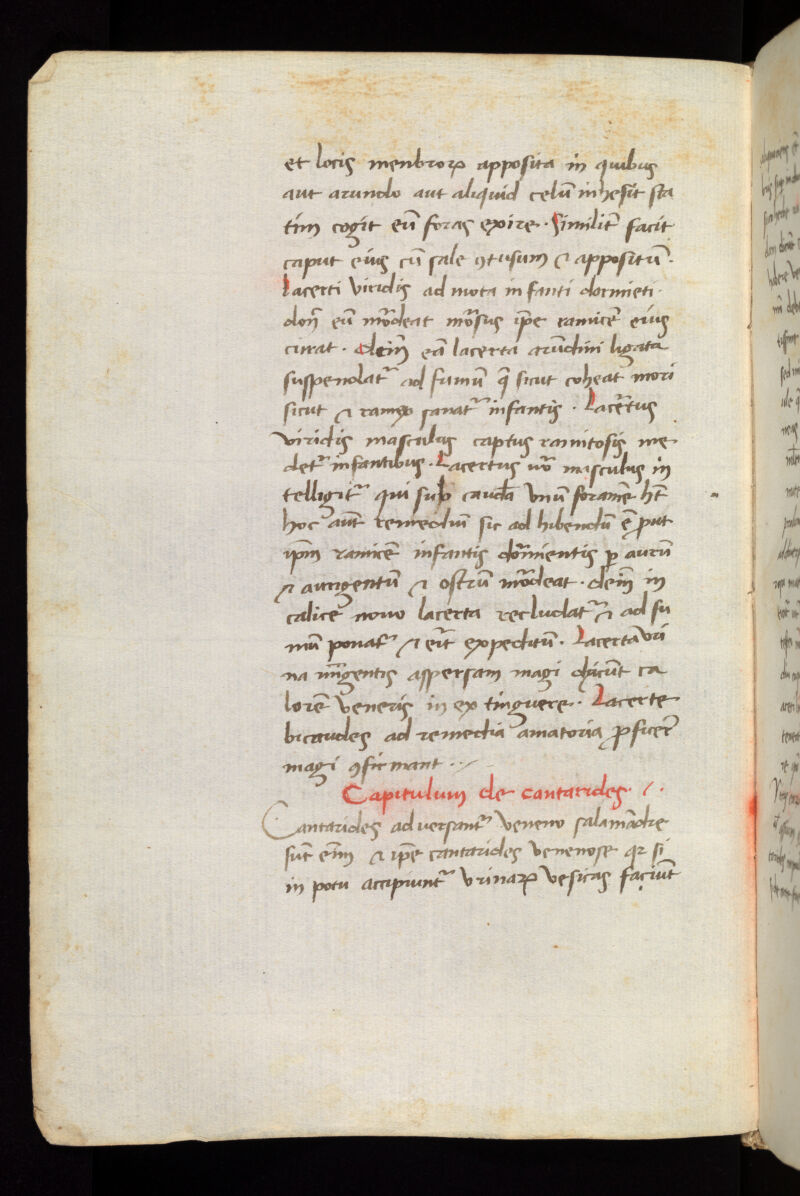 et locis menbroꝝ apposita in quibus
aut arundo aut aliquid celū inhesit sta
tim cogit eū foras exire. Similit̄ facit
caput eius cū sale ꝯtusum ⁊ appositū.
Lacerti viridis ad mota infanti dormiēti.
donꝭ eū mordeat morsus ip̄e ramicē eius
curat. deīn eā lacerta arūdini ligata
suspendatʳ ad fumū q̄ sicut coheat mori
sicut ⁊ ramex sanatʳ infantis. Lacertus
viridis masculus captus ramitosis me
detʳ infantibus. Lacertus v̄o masculus in
telligitʳ qui sub cauda vnū foramē ht̄
hoc aūt remediū sic ad hibendū ē put
ip̄m ramicē infantis dormientis ꝑ aurū
⁊ aurgentū ⁊ ostrū mordeat. deīn in
calice nouo lacerta recludatʳ ⁊ ad fu
mū ponatʳ ⁊ erit expeditū. Lacerta vri
na mīgentis aspersam magi dicūt ca
lorē veneris in ex tinguere. Lacerte
bicaudes ad remedia amatoria ꝓficere
magi ꝯfirmant.
Capitulum de cantarides.
Cantarides ad versantʳ veneno salamādre
sūt enī ⁊ ip̄e cantarides venenose qr si
in potu accipiuntʳ vrinaꝝ vesicas faciūt